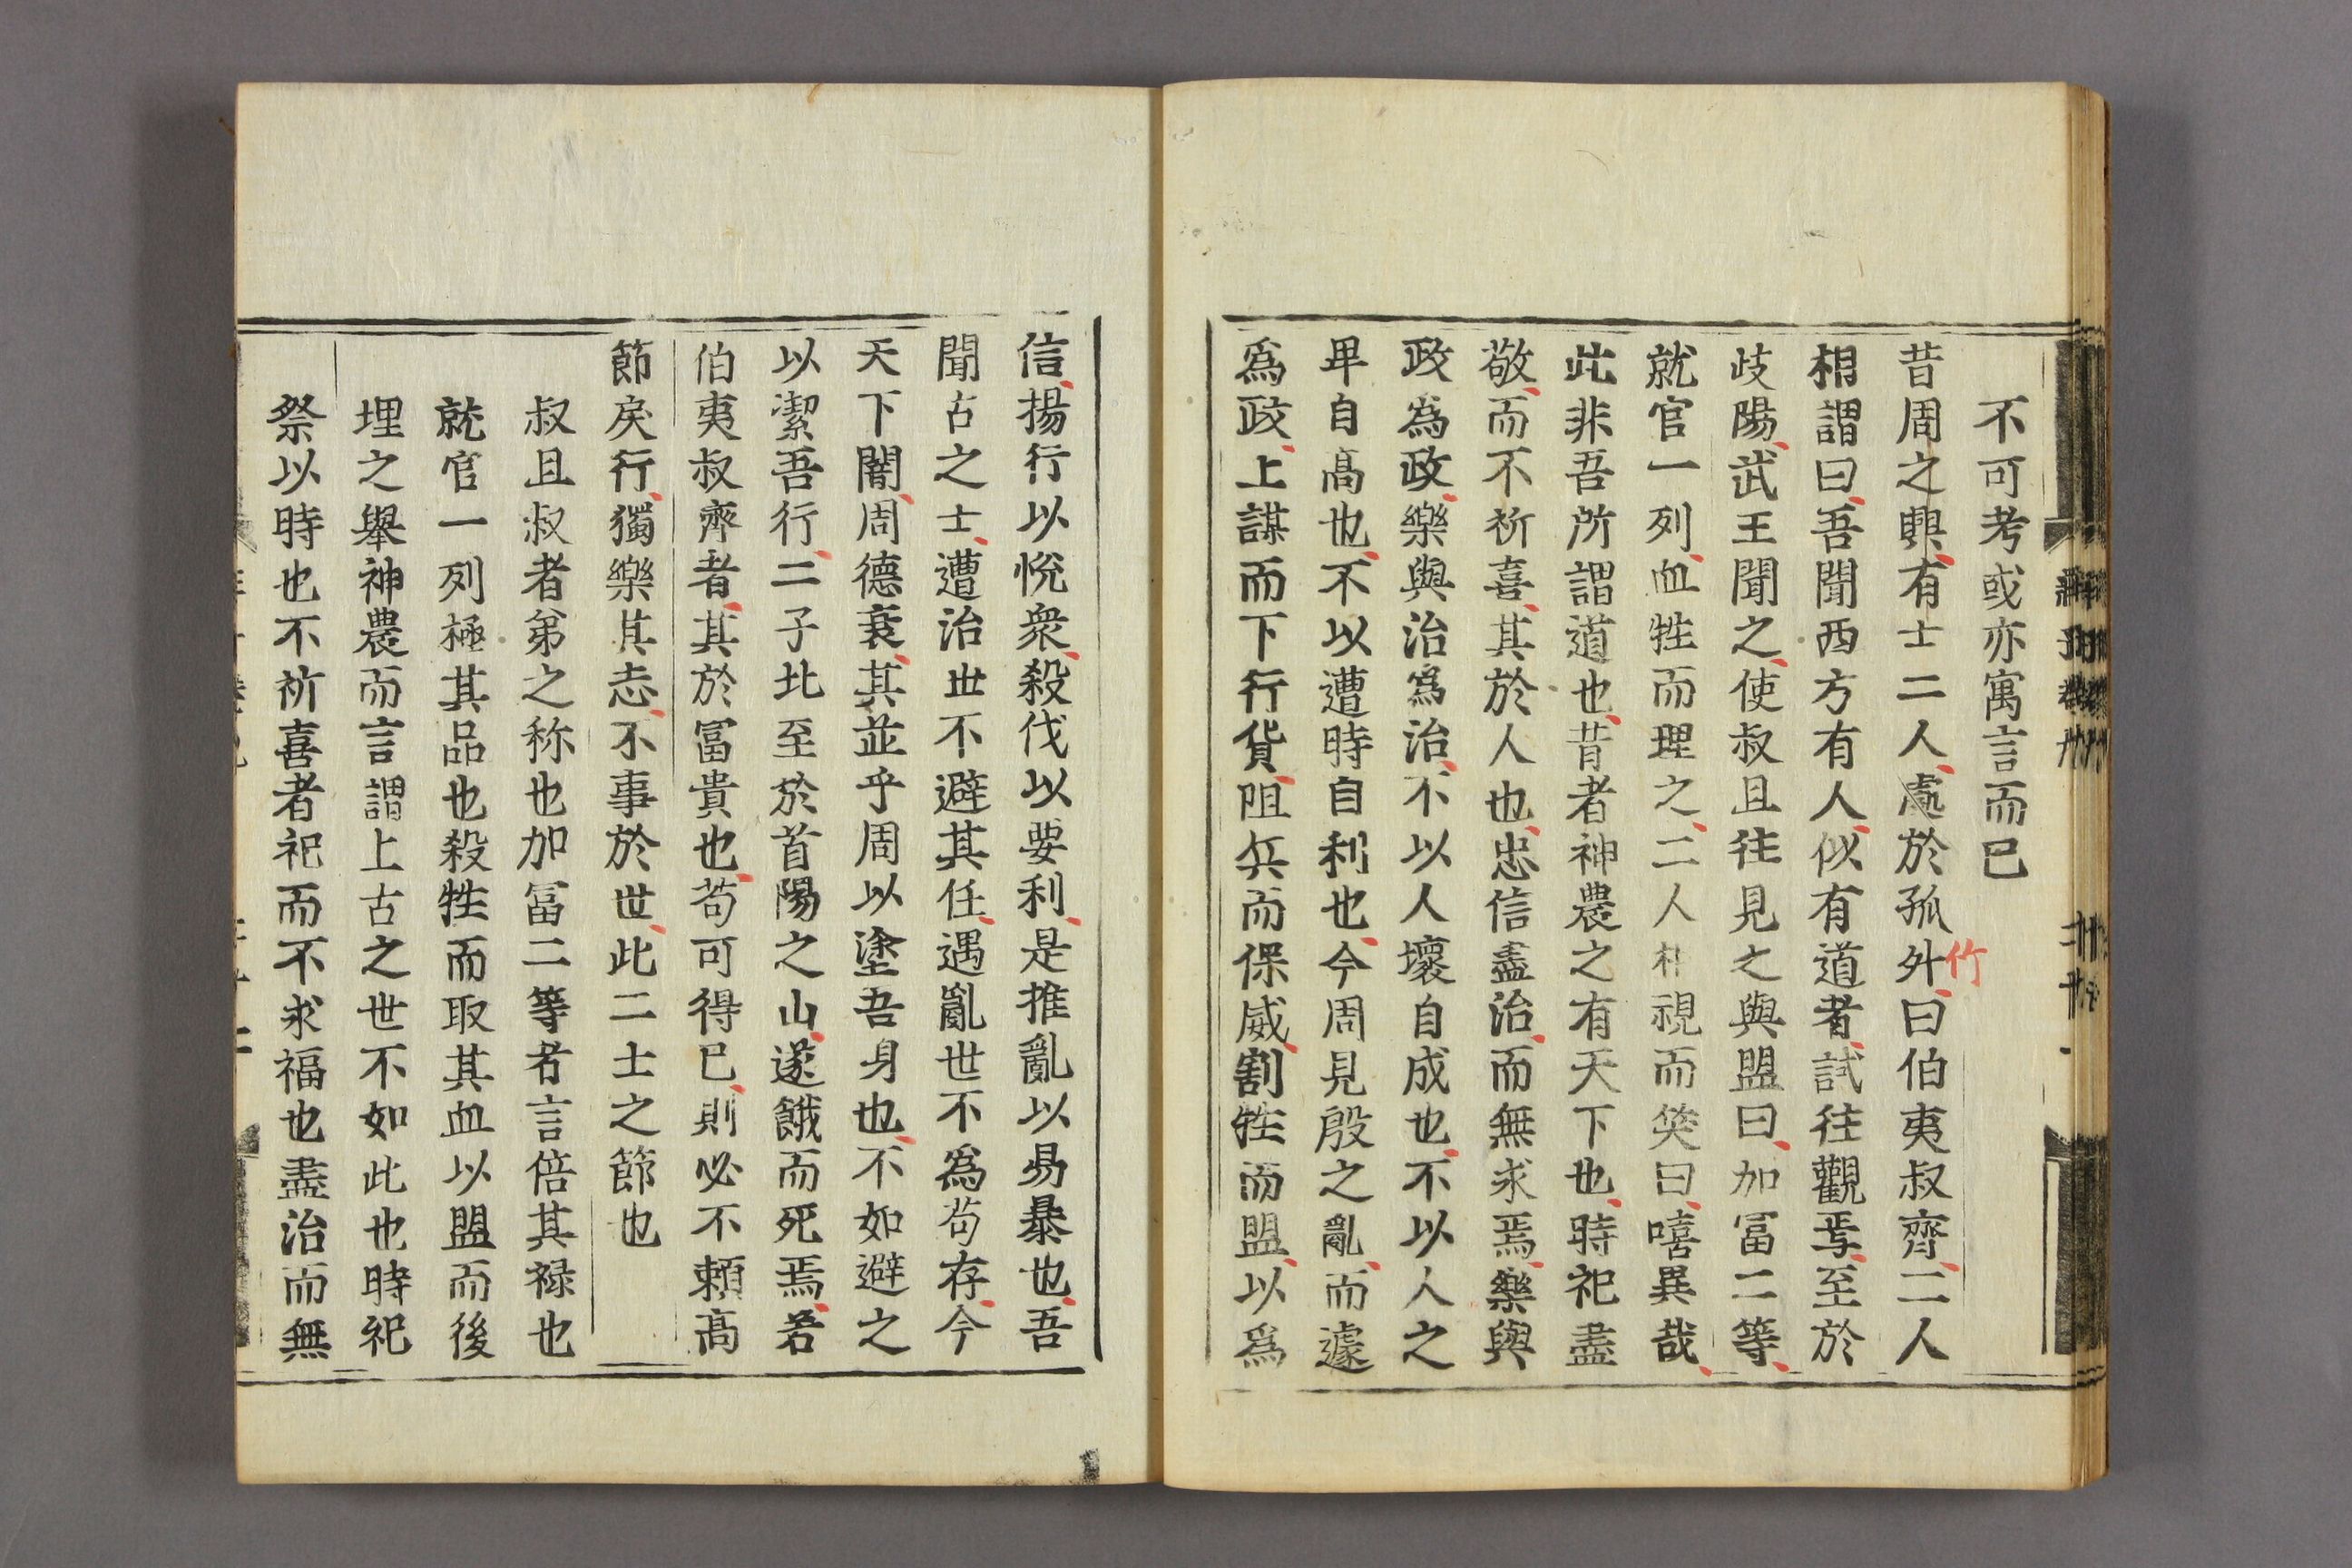 不可考或亦寓言而已
昔周之興有士二人處於孤外曰伯夷叔齊二人
竹
相謂曰吾聞西方有人似有道者試往觀焉至於
歧陽武王聞之使叔且往見之與盟曰加冨二等
就官一列血牲而埋之二人相視而笑曰嘻異哉
此非吾所謂道也昔者神農之有天下也時祀盡
敬而不祈喜其於人也忠信盡治而無求焉樂與
政為政樂與治為治不以人壞自成也不以人之
卑自高也不以遭時自利也今周見殷之亂而遽
為政上謀而下行貨阻兵而保威割牲而盟以為
信揚行以悅衆殺伐以要利是推亂以易暴也吾
聞古之士遭治世不避其任遇亂世不為苟存今
天下闇周德衰其並乎周以塗吾身也不如避之
以潔吾行二子北至於首陽之山遂餓而死焉若
伯夷叔齊者其於冨貴也苟可得已則必不頼高
節戾行獨樂其志不事於世此二士之節也
叔且叔者弟之称也加冨二等者言倍其禄也
就官一列極其品也殺牲而取其血以盟而後
埋之舉神農而言謂上古之世不如此也時祀
祭以時也不祈喜者祀而不求福也盡治而無